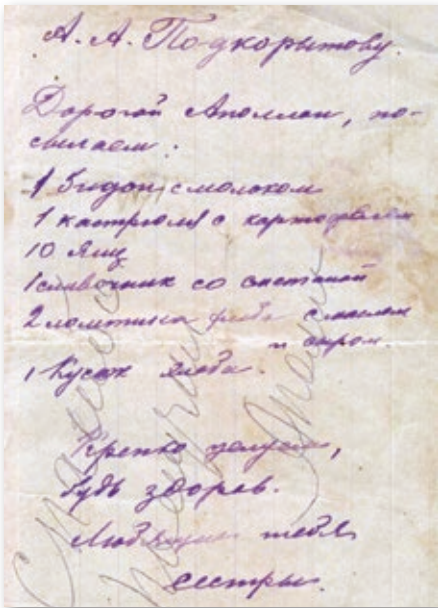 А. А. Подкорытову.
Дорогой Аполлон, по-
сылаем:
1 бидон с молоком
1 кастрюля с картофелем
10 яиц
1 сливочник со сметаной
2 ломтика хлеба с маслом
и сыром.
1 кусок хлеба.
Крепко целуем,
будь здоров.
Любящие тебя
сестры.